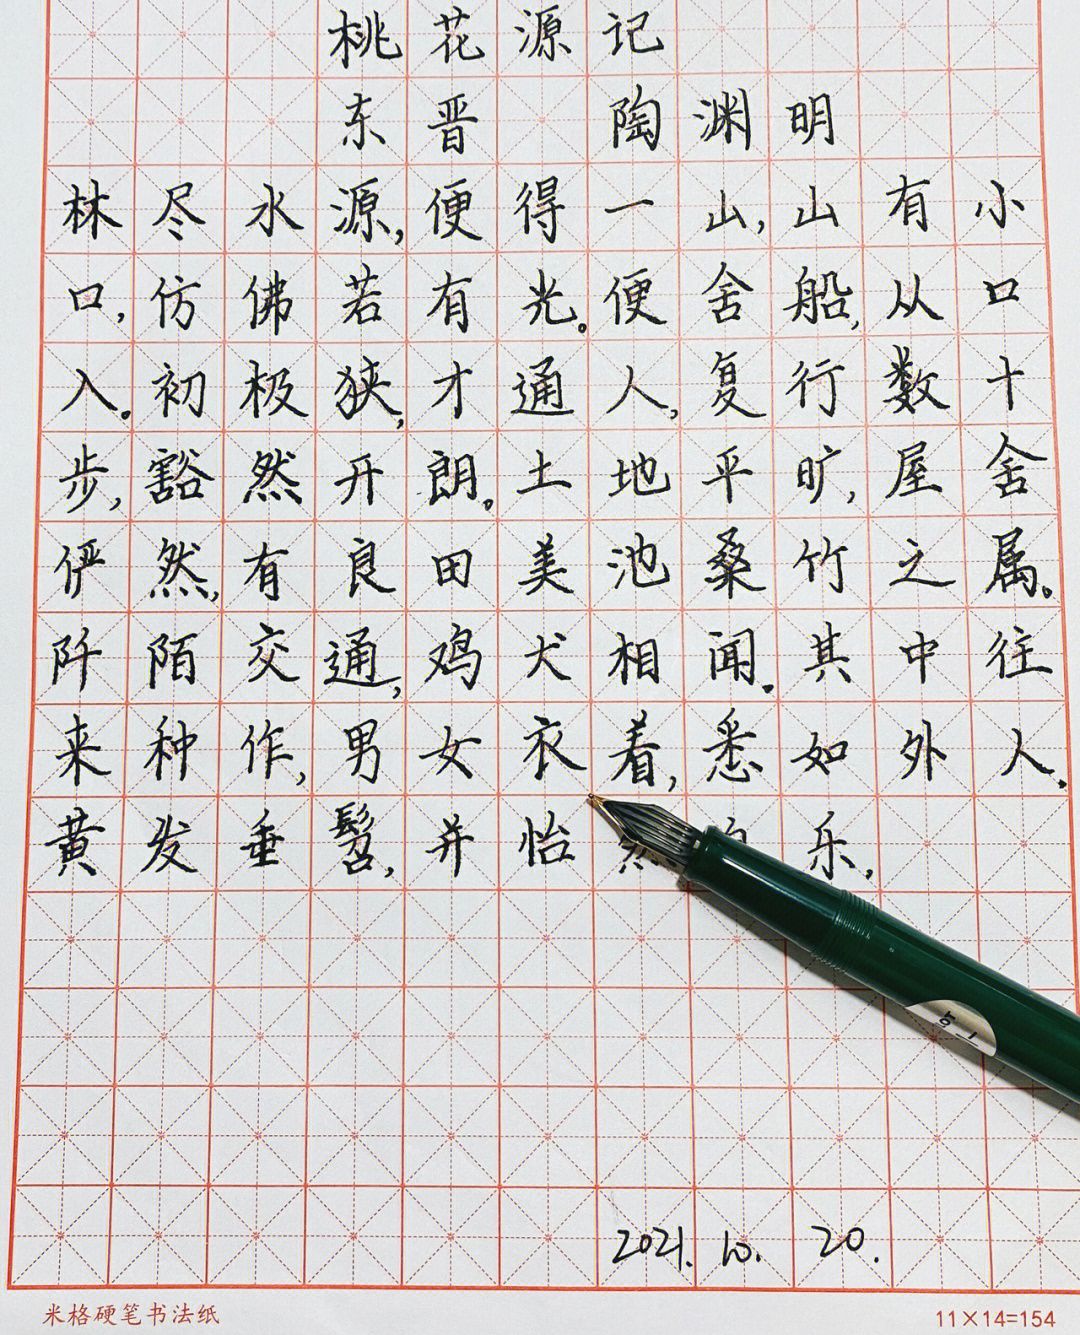 桃花源记
东晋 陶渊明
林尽水源,便得一山,山有小
口,仿佛若有光。便舍船,从口
入。初极狭,才通人,复行数十
步,豁然开朗。土地平旷,屋舍
俨然,有良田美池桑竹之属。
阡陌交通,鸡犬相闻。其中往
来种作,男女衣着,悉如外人.
黄发垂髫,并怡 乐,
2021. 10. 20.
米格硬笔书法纸 11×14=154